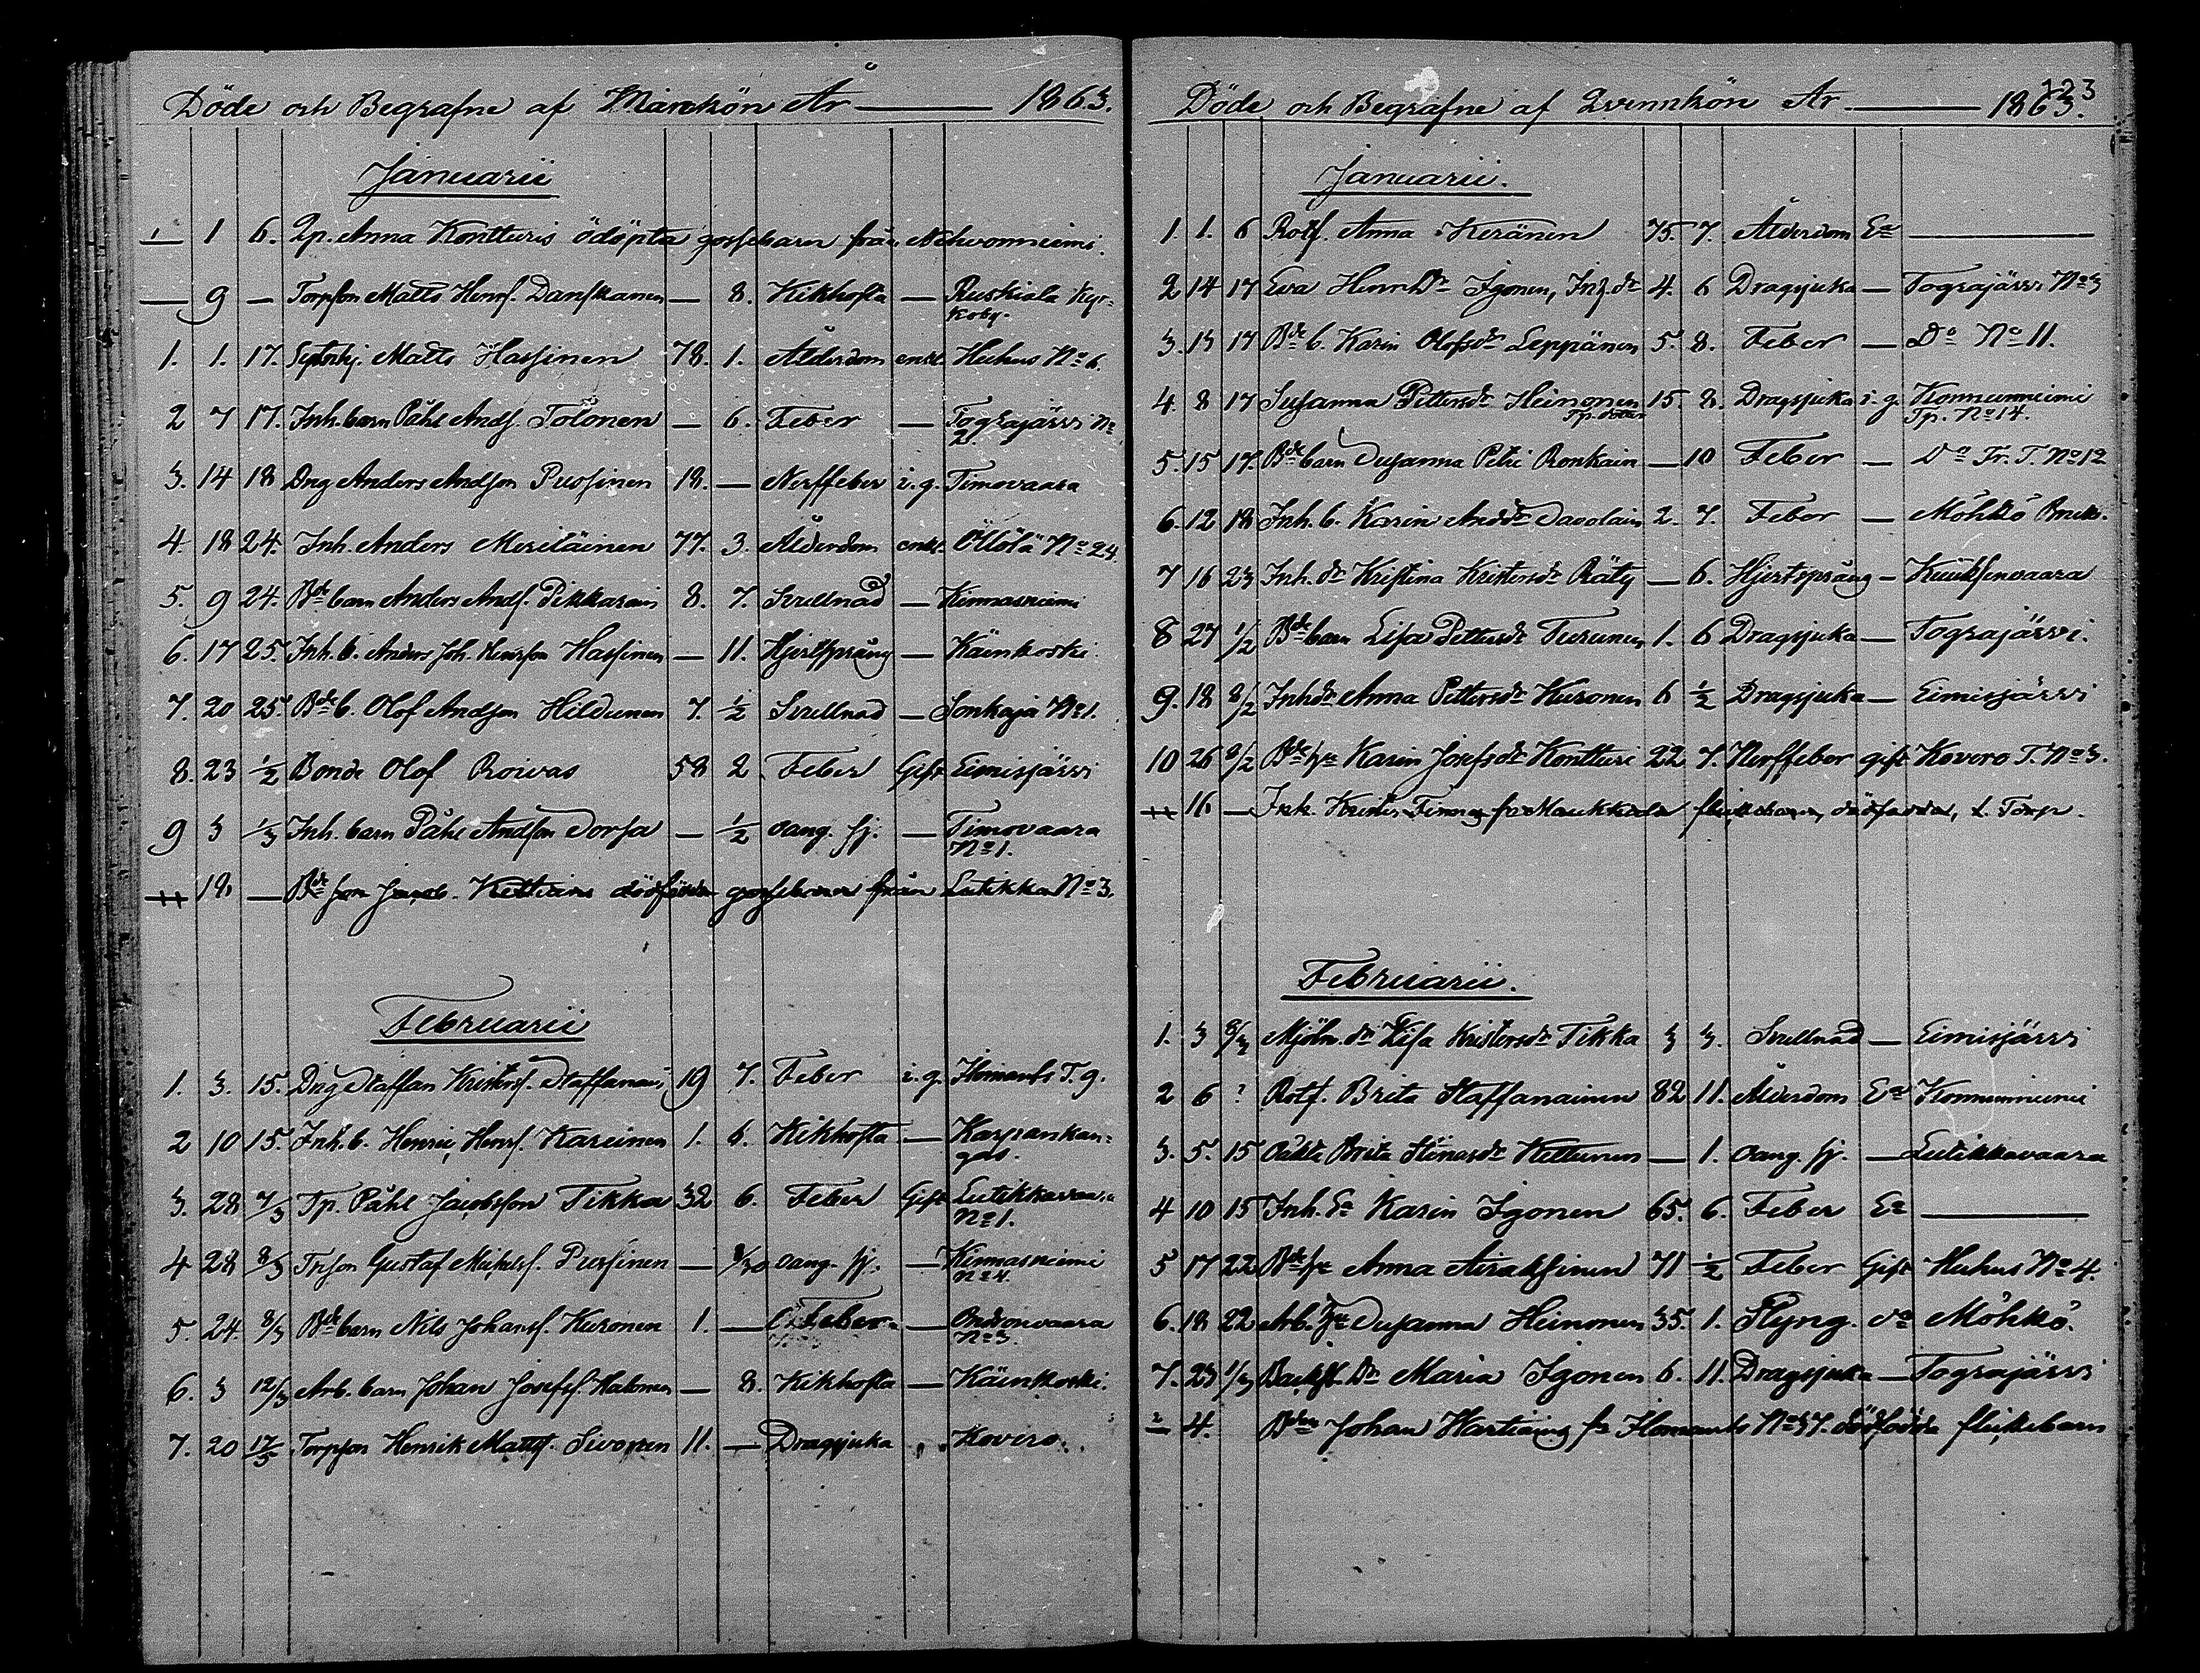 Döde och Begrafne af Mankön År 1863.
Januarii
1 1 6. Qp. Anna Kontturis odöpta gossebarn från Nehvonniemi.
— 9 — Torpson Matts Henrs. Danskanen — 8. Kikhosta — Ruskiala Kyr-
koby.
1. 1. 17. Matts Hassinen 78. 1. Ålderdom enkl. Huhus No 6.
2 7 17. Inh. barn Påhl Ands. Tolonen — 6. Feber — Tograjärvi No
2.
3. 14 18 Dng Anders Andson Pussinen 18. — Nerffeber i.g. Timovaara
4. 18 24. Inh. Anders Meriläinen 77. 3. Ålderdom enkl. Öllölä No 24.
5. 9 24. Bde barn Anders Ands. Pikkarain 8. 7. Svullnad — Kinnasniemi
6. 17 25. Inh. b. Anders Joh. Henrson Hassinen — 11. Hjertsprång — Käenkoski.
7. 20 25. Bde b. Olof Andson Hildunen 7. 1/2 Svullnad — Sonkaja No 1.
8. 23 1/2 Bonde Olof Roivas 58 2. Feber Gift Eimisjärvi
9 3 1/3 Inh. barn Påhl Andson Sorsa — 1/2 oang. sj. — Timovaara
No 1.
18. — Bde son Jacob dödfödda gossebarn från Lutikka No 3.
Februarii
1. 3. 15. Dng Staffan Kristers. Staffanain 19 7. Feber i.g. Ilomants T. 9.
2 10 15. Inh. b. Henric Henrs. Kareinen 1. 6. Kikhosta — Karpankan-
gas.
3. 28 7/3 Tp. Påhl Jacobsson Tikka 32 6. Feber Gift Lutikkavaara
No 1.
4 28 8/3 Tpson Gustaf Michels. Pussinen — 1/30 oang. sj. — Kinnasniemi
No 4.
5. 24 8/3 Bde barn Nils Johans. Kuronen 1. — Feber — Ondonvaara
No 3.
6. 3 12/3 Arb. barn Johan Josefs. Halonen — 8. Kikhosta — Käenkoski.
7. 20 17/3 Torpson Henrik Matts. Sivonen 11. — Dragsjuka Kovero.
123
Döde och Begrafne af Qvinnkön År 1863.
Januarii.
1. 1. 6 Rotf. Anna Keränen 75. 7. Ålderdom Ea —
2 14 17 Eva Henrdr Igonen, Inh. dr 4. 6 Dragsjuka — Tograjärvi No 3
3. 13 17 Bde b. Karin Olofsdr Leppänen 5. 8. Feber — Do No 11.
4. 8 17 Susanna Pettersdr Heinonen 15. 8. Dragsjuka i.g. Konnunniemi
Tp. dotter Tp. No 14.
5. 15 17. Bde barn Susanna Petri Ronkain — 10 Feber — Do Tr. T. No 12
6. 12 18 Inh. b. Karin Andsdr Davolain 2. 7. Feber — Möhkö Bruk.
7 16 23 Inh. dr Kristina Kristersdr Räty — 6. Hjertsprång — Kuuksenvaara
8 27 1/2 Bde barn Lisa Pettersdr Turunen 1. 6 Dragsjuka — Tograjärvi.
9. 18 8/2 Inhdr Anna Pettersdr Kuronen 6 1/2 Dragsjuka — Eimisjärvi
10 26 8/2 Bde hu Karin Josefsdr Kontturi 22 7. Nerffeber gift Kovero T. No 3.
16 — Inh. fr Maukkala flickebarn, dödfödda,
Februarii.
1. 3 8/3 Mjöln. dr Lisa Kristersdr Tikka 3 3. Svullnad — Eimisjärvi
2 6 ? Rotf. Brita Staffanainen 82 11. Ålderdom Ea Konnunniemi
3. 5. 15 Oäkta Brita Kettunen — 1. oang. sj. — Lutikkavaara
4 10 15 Inh. Ea Karin Igonen 65. 6. Feber Ea —
5 17 22 Bde hu Anna Airaksinen 71 1/2 Feber Gift Huhus No 4.
6. 18 22 Arb. hu Susanna Heinonen 35. 1. Styng. do Möhkö.
7. 23 1/3 Dr Maria Igonen 6. 11. Dragsjuka — Tograjärvi
2 4. Bden Johan fr Ilomants No 37. dödfödda flickebarn